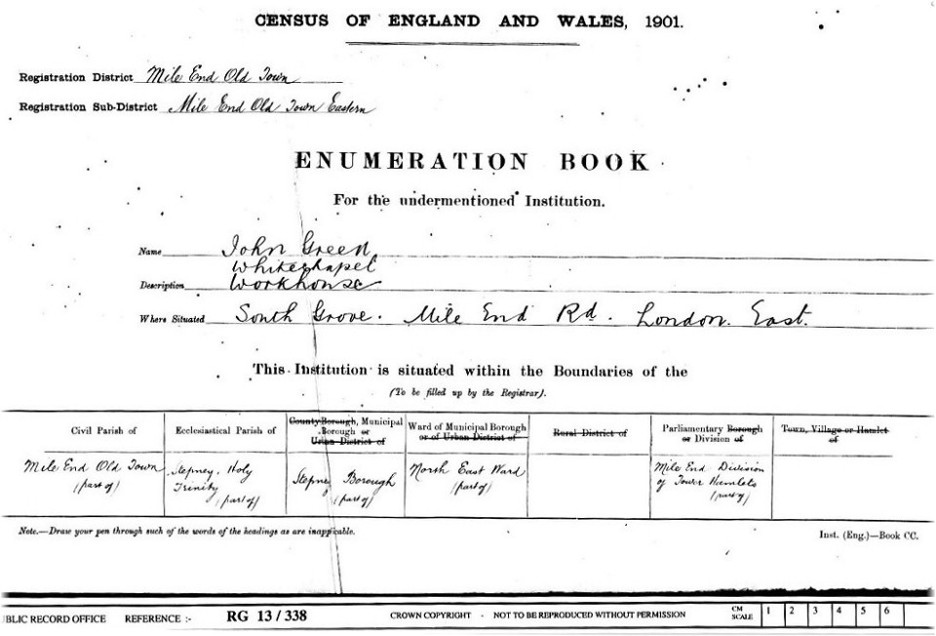 CENSUS OF ENGLAND AND WALES, 1901.
Registration District Mile End Old Town
Registration Sub-District Mile End Old Town Eastern
ENUMERATION BOOK
For the undermentioned Institution.
Name John Green
Whitechapel
Description Workhouse
Where Situated South Grove. Mile End Rd. London. East.
This Institution is situated within the Boundaries of the
(To be filled up by the Registrar).
Civil Parish of
Ecclesiastical Parish of
County Borough, Municipal
Borough or
Urban District of
Ward of Municipal Borough
or of Urban District of
Rural District of
Parliamentary Borough
or Division of
Town, Village or Hamlet
of
Mile End Old Town
(part of)
Stepney. Holy
Trinity
(part of)
Stepney Borough
(part of)
North East Ward
(part of)
Mile End Division
of Tower Hamlets
(part of)
Note.—Draw your pen through such of the words of the headings as are inapplicable.
Inst. (Eng.)—Book CC.
BLIC RECORD OFFICE REFERENCE :- RG 13/338 CROWN COPYRIGHT - NOT TO BE REPRODUCED WITHOUT PERMISSION CM SCALE 1 2 3 4 5 6